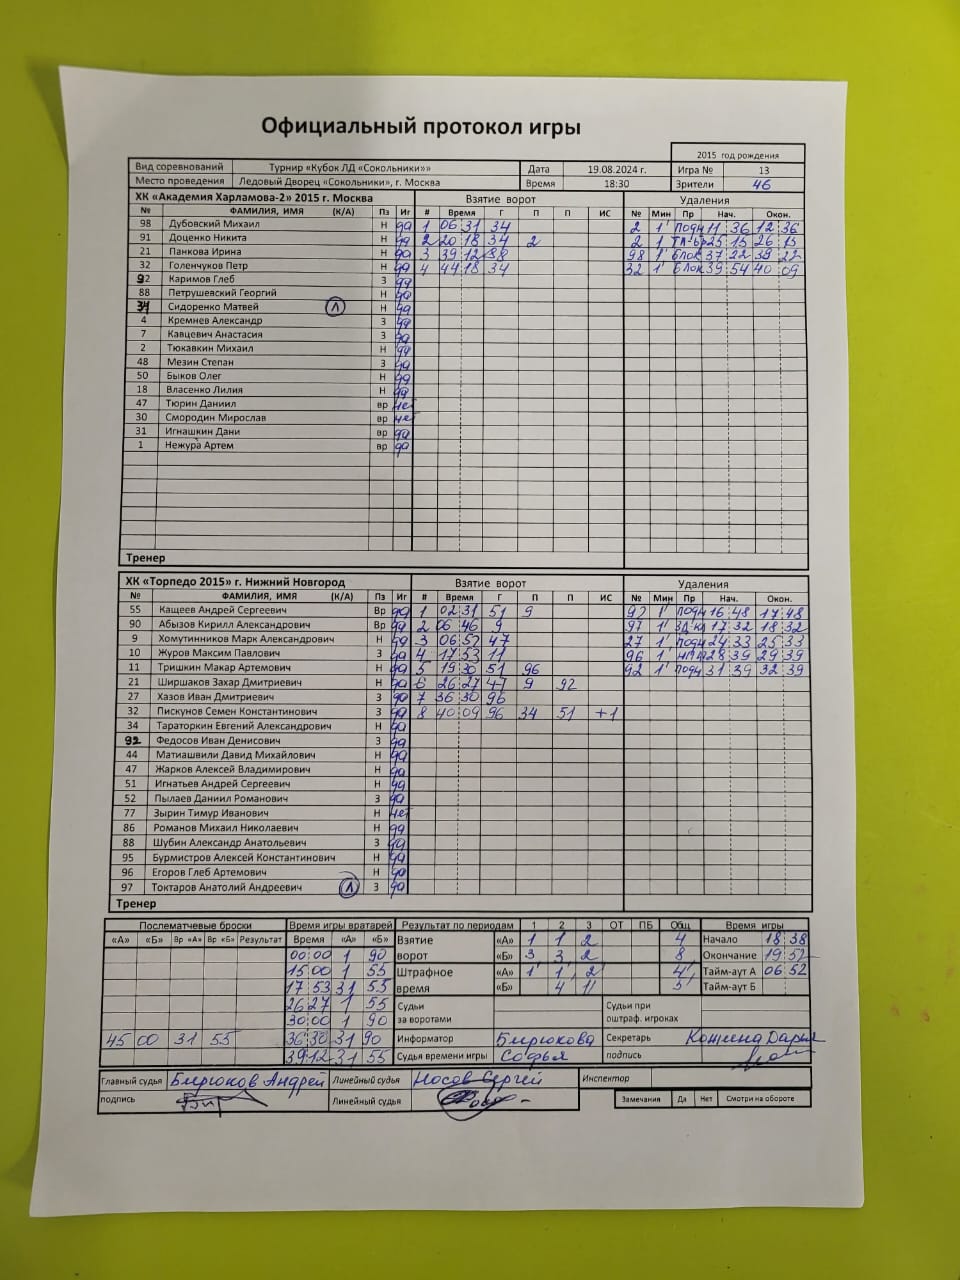 Официальный протокол игры
2015 год рождения
Вид соревнований Турнир «Кубок ЛД «Сокольники»» Дата 19.08.2024 г. Игра № 13
Место проведения Ледовый Дворец «Сокольники», г. Москва Время 18:30 Зрители 46
ХК «Академия Харламова-2» 2015 г. Москва Взятие ворот Удаления
№ ФАМИЛИЯ, ИМЯ (К/А) Пз Иг # Время Г П П ИС № Мин Пр Нач. Окон.
98 Дубовский Михаил Н да 1 06 31 34 2 1' подн 11 36 12 36
91 Доценко Никита Н да 2 20 18 34 2 2 1 25 15 26 15
21 Панкова Ирина Н да 3 39 12 88 98 1' блок 37 22 38 22
32 Голенчуков Петр Н да 4 44 18 34 32 1' блок 39 54 40 09
92 Каримов Глеб З да
88 Петрушевский Георгий Н да
34 Сидоренко Матвей Л Н да
4 Кремнев Александр З да
7 Кавцевич Анастасия З да
2 Тюкавкин Михаил Н да
48 Мезин Степан З да
50 Быков Олег Н да
18 Власенко Лилия Н да
47 Тюрин Даниил вр нет
30 Смородин Мирослав вр нет
31 Игнашкин Дани вр да
1 Нежура Артем вр да
Тренер
ХК «Торпедо 2015» г. Нижний Новгород Взятие ворот Удаления
№ ФАМИЛИЯ, ИМЯ (К/А) Пз Иг # Время Г П П ИС № Мин Пр Нач. Окон.
55 Кащеев Андрей Сергеевич Вр да 1 02 31 51 9 97 1' подн 16 48 17 48
90 Абызов Кирилл Александрович Вр да 2 06 46 9 97 1' зд-ка 17 32 18 32
9 Хомутинников Марк Александрович Н да 3 06 57 47 27 1' подн 24 33 25 33
10 Журов Максим Павлович З да 4 17 53 11 96 1' 28 39 29 39
11 Тришкин Макар Артемович Н да 5 19 30 51 96 92 1' подн 31 39 32 39
21 Ширшаков Захар Дмитриевич Н да 6 26 27 47 9 92
27 Хазов Иван Дмитриевич З да 7 36 30 96
32 Пискунов Семен Константинович З да 8 40 09 96 34 51 +1
34 Тараторкин Евгений Александрович Н да
92 Федосов Иван Денисович З да
44 Матиашвили Давид Михайлович Н да
47 Жарков Алексей Владимирович Н да
51 Игнатьев Андрей Сергеевич Н да
52 Пылаев Даниил Романович З да
77 Зырин Тимур Иванович Н нет
86 Романов Михаил Николаевич Н да
88 Шубин Александр Анатольевич З да
95 Бурмистров Алексей Константинович Н да
96 Егоров Глеб Артемович Н да
97 Токтаров Анатолий Андреевич Л З да
Тренер
Послематчевые броски Время игры вратарей Результат по периодам 1 2 3 ОТ ПБ Общ Время игры
«А» «Б» Вр «А» Вр «Б» Результат Время «А» «Б» Взятие «А» 1 1 2 4 Начало 18 38
00 00 1 90 ворот «Б» 3 3 2 8 Окончание 19 52
15 00 1 55 Штрафное «А» 1' 1 2' 4' Тайм-аут А 06 52
17 53 31 55 время «Б» 4 1' 5' Тайм-аут Б
26 27 1 55 Судьи Судьи при
30 00 1 90 за воротами оштраф. игроках
45 00 31 55 36 30 31 90 Информатор Бирюкова Секретарь Дарья
39 12 31 55 Судья времени игры Софья подпись
Главный судья Бирюков Андрей Линейный судья Носов Сергей Инспектор
подпись Линейный судья Замечания Да Нет Смотри на обороте